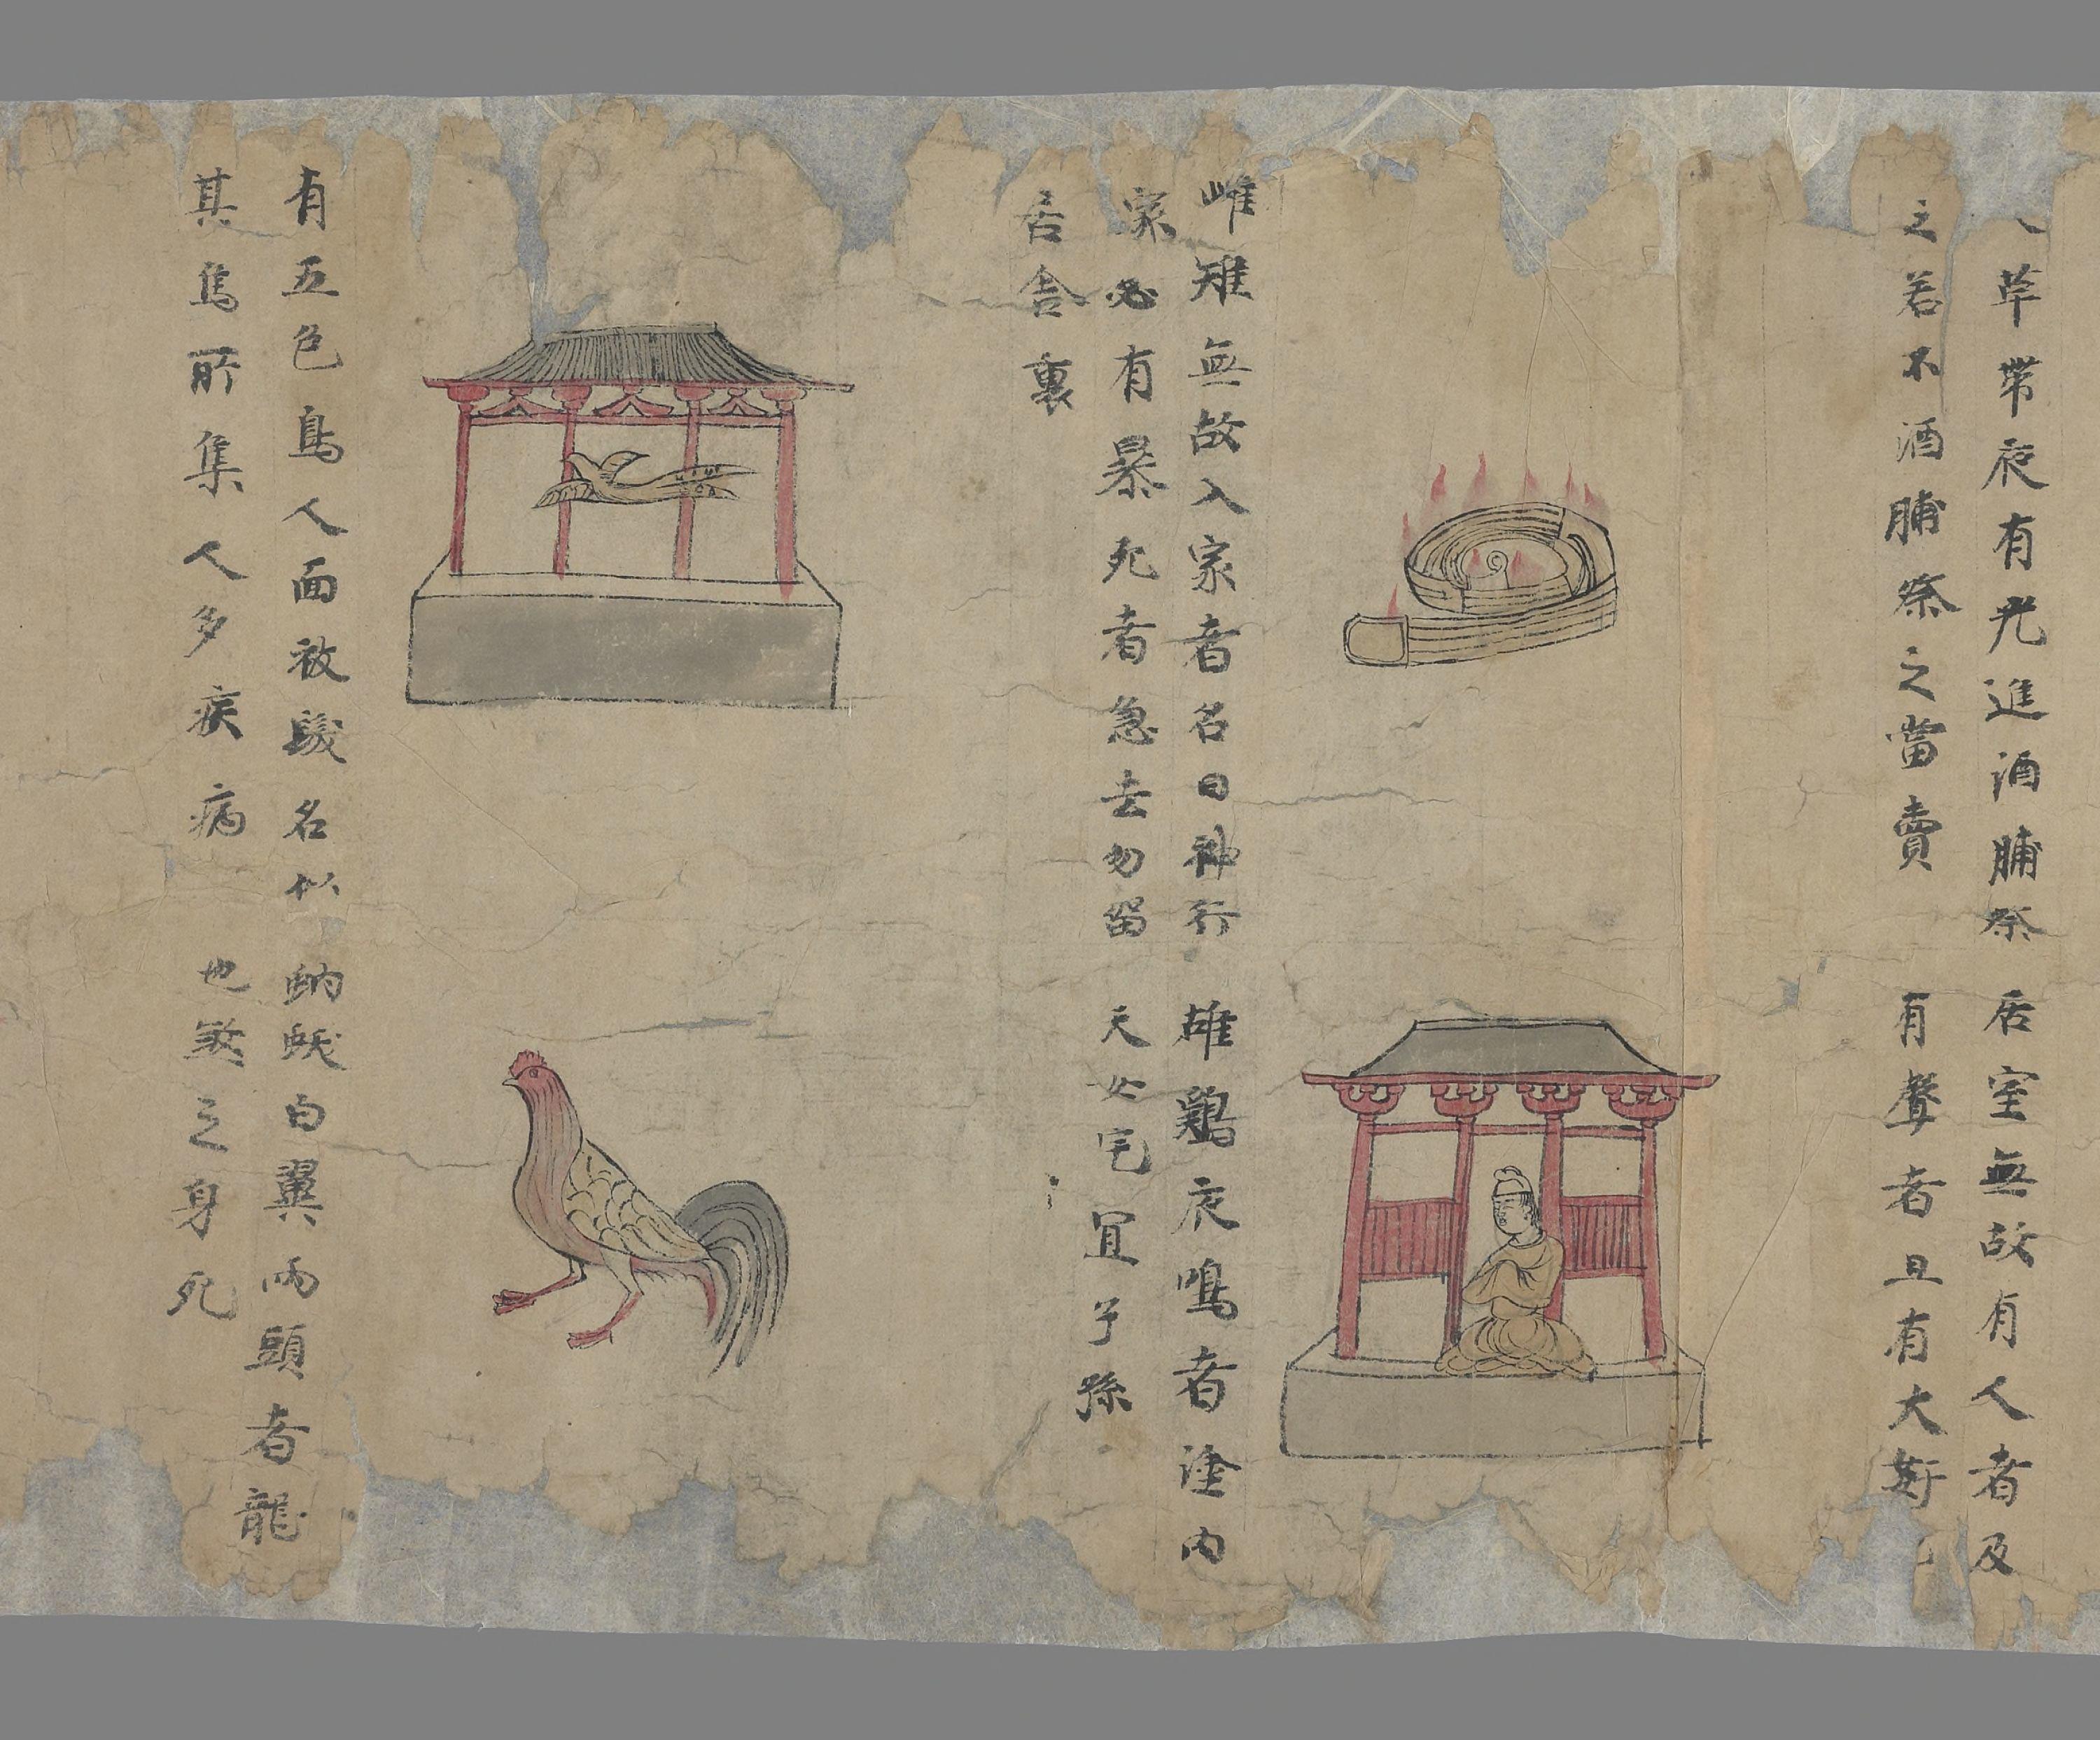 草帶夜有光進酒脯祭
之若不酒脯祭之當賣
居室無故有人者及
有聲者且有大
雌雉無故入家者名曰神行
家必有暴死者急去勿留
居舍裏
雄鷄衣鳴者塗內
天女宅宜子孫
有五色鳥人面被髮名似
其鳥所集人多疾病
蚋蛾白翼兩頭者龍
也煞之身死